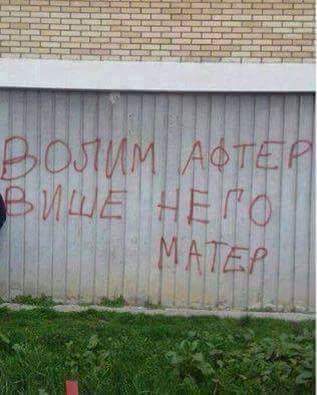 ВОЛИМ АФТЕР
ВИШЕ НЕГО
МАТЕР